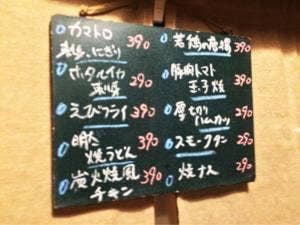 カマトロ 390
刺身、にぎり
ホタルイカ 290
刺身
えびフライ 390
明太 390
焼うどん
炭火焼風 390
チキン
若鶏の唐揚 390
豚肉トマト 390
玉子焼
厚切り 290
ハムカツ
スモークタン 290
焼ナス 290